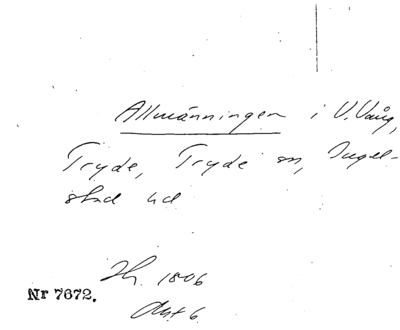 Allmänningen i V. Vång,
Tryde, Tryde sn, Ingel-
stad hd
Nr 7672.
1806
Akt 6